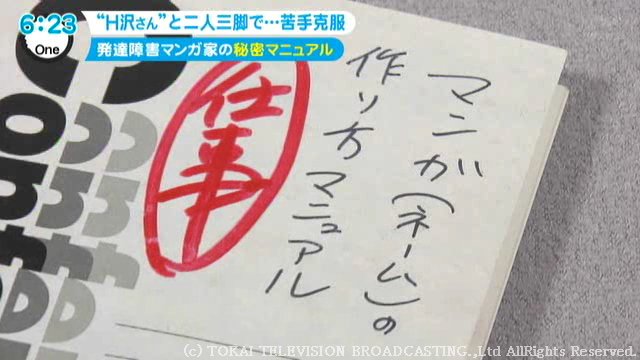 6:23
One
“H沢さん”と二人三脚で…苦手克服
発達障害マンガ家の秘密マニュアル
マンガ(ネーム)の
作り方マニュアル
仕事
(C) TOKAI TELEVISION BROADCASTING.,Ltd AllRights Reserved.